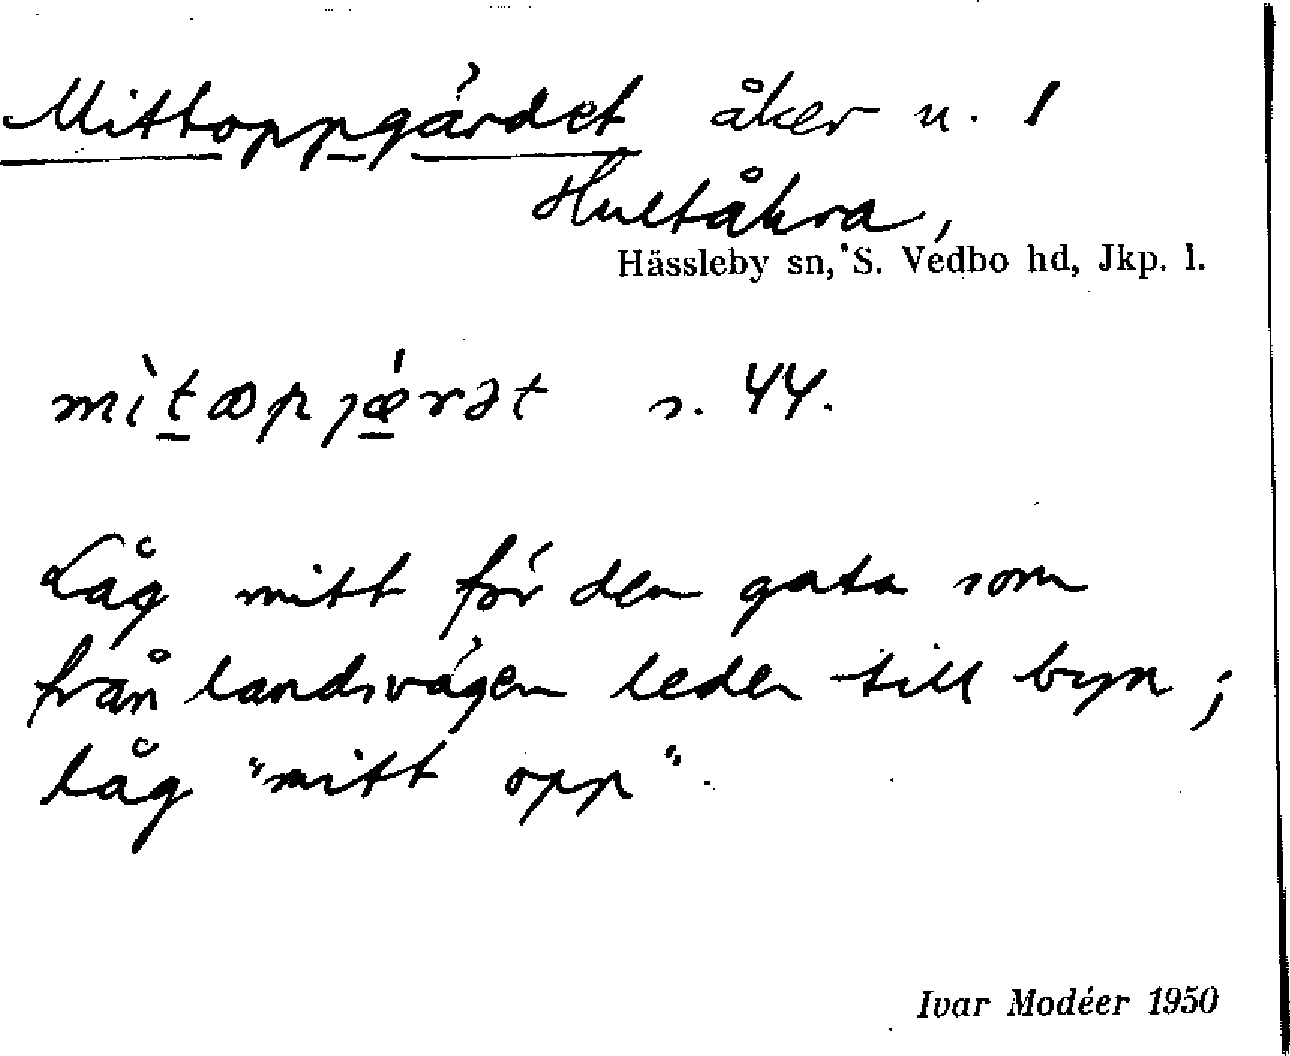 Mittoppgärdet åker u. 1
Hultåkra,
Hässleby sn, S. Vedbo hd, Jkp. l.
mìtꝏpȷǽrət s. 44.
Låg mitt för den gata som
från landsvägen leder till byn;
låg "mitt opp".
Ivar Modéer 1950